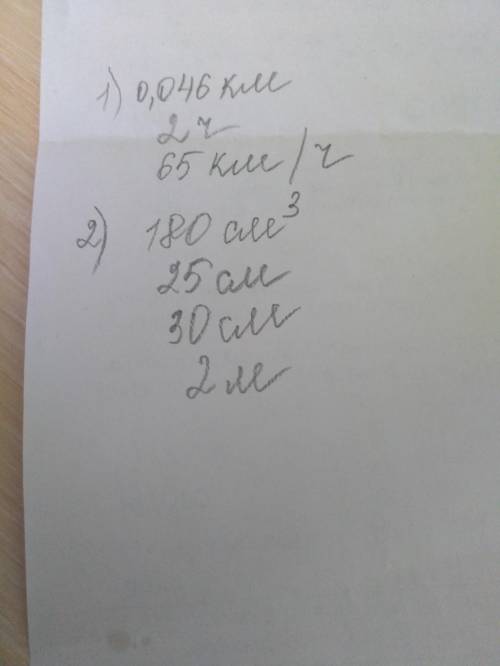 1) 0,046 км
2 ч
65 км/ч
2) 180 см³
25 см
30 см
2 м